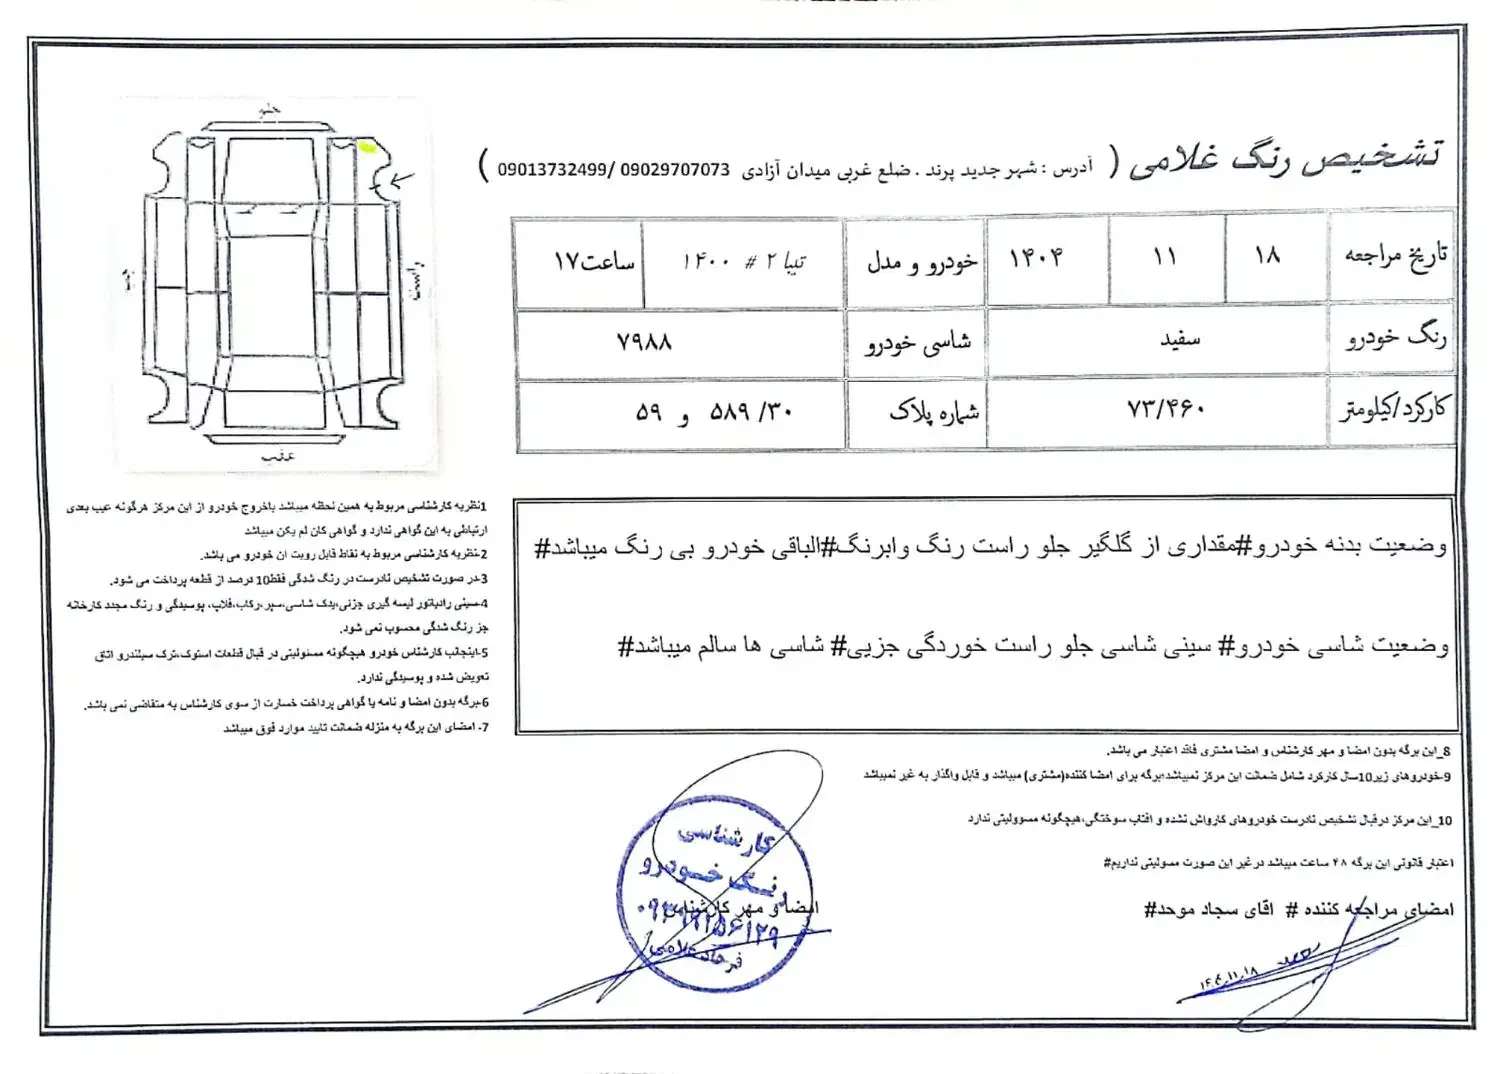 تشخیص رنگ غلامی ( آدرس : شهر جدید پرند . ضلع غربی میدان آزادی 09029707073 /09013732499 )
تاریخ مراجعه ۱۸ ۱۱ ۱۴۰۴ خودرو و مدل تیبا ۲ # ۱۴۰۰ ساعت۱۷
رنگ خودرو سفید شاسی خودرو ۷۹۸۸
کارکرد/کیلومتر ۷۳/۴۶۰ شماره پلاک ۳۰/ ۵۸۹ و ۵۹
جلو
راست
چپ
عقب
وضعیت بدنه خودرو#مقداری از گلگیر جلو راست رنگ وابرنگ#الباقی خودرو بی رنگ میباشد#
وضعیت شاسی خودرو# سینی شاسی جلو راست خوردگی جزیی# شاسی ها سالم میباشد#
1نظریه کارشناسی مربوط به همین لحظه میباشد باخروج خودرو از این مرکز هرگونه عیب بعدی
ارتباطی به این گواهی ندارد و گواهی کان لم یکن میباشد
2-نظریه کارشناسی مربوط به نقاط قابل رویت ان خودرو می باشد.
3-در صورت تشخیص نادرست در رنگ شدگی فقط10 درصد از قطعه پرداخت می شود.
4-سینی رادیاتور لیسه گیری جزئی،یدک شاسی،سپر،رکاب،فلاپ، پوسیدگی و رنگ مجدد کارخانه
جز رنگ شدگی محسوب نمی شود.
5-اینجانب کارشناس خودرو هیچگونه مسئولیتی در قبال قطعات استوک،ترک سیلندرو اتاق
تعویض شده و پوسیدگی ندارد.
6-برگه بدون امضا و نامه یا گواهی پرداخت خسارت از سوی کارشناس به متقاضی نمی باشد.
7- امضای این برگه به منزله ضمانت تایید موارد فوق میباشد
8_این برگه بدون امضا و مهر کارشناس و امضا مشتری فاقد اعتبار می باشد.
9-خودروهای زیر10سال کارکرد شامل ضمانت این مرکز نمیباشد،برگه برای امضا کننده(مشتری) میباشد و قابل واگذار به غیر نمیباشد
10_این مرکز درقبال تشخیص نادرست خودروهای کارواش نشده و افتاب سوختگی،هیچگونه مسوولیتی ندارد
اعتبار قانونی این برگه ۴۸ ساعت میباشد درغیر این صورت مسولیتی نداریم#
امضای مراجعه کننده # اقای سجاد موحد#
امضا و مهر کارشناس
کارشناسی
رنگ خودرو
فرهاد غلامی